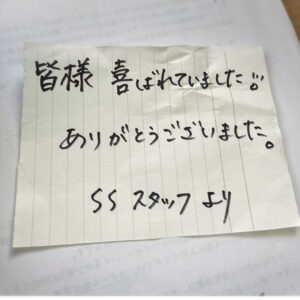 皆様 喜ばれていました!!
ありがとうございました。
SS スタッフ より